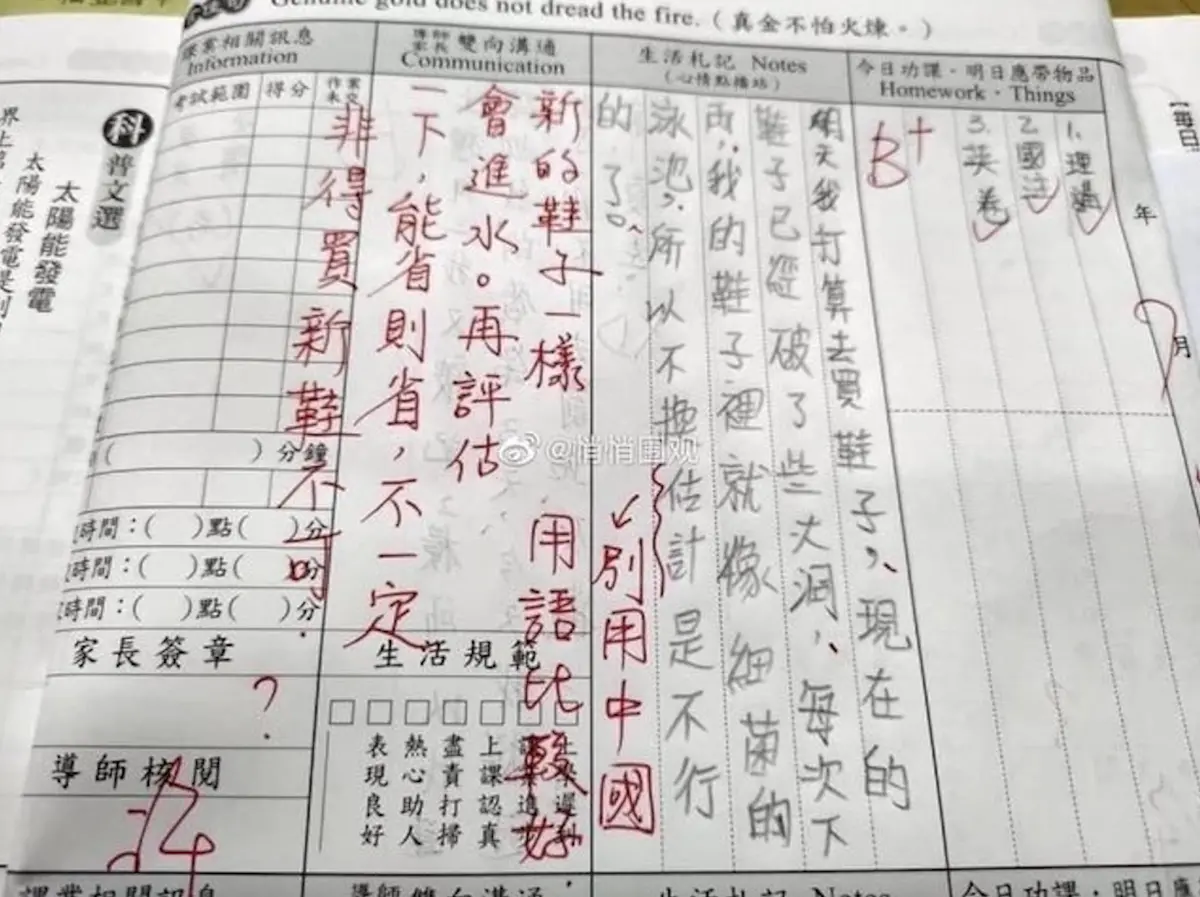 Genuine gold does not dread the fire.（真金不怕火煉。）
課業相關訊息
Information
考試範圍
得分
作業
未交
導師
家長
雙向溝通
Communication
生活札記 Notes
（心情點播站）
今日功課・明日應帶物品
Homework・Things
1. 理講
2. 國注
3. 英卷
B+
年
月
明天我打算去買鞋子，現在的
鞋子已經破了些大洞，每次下
雨，我的鞋子裡就像細菌的
泳池，所以不換估計是不行
的了。
↙別用中國
用語比較好.
新的鞋子一樣
會進水。再評估
一下，能省則省，不一定
非得買新鞋不可.
（ ）分鐘
時間：（ ）點（ ）分
時間：（ ）點（ ）分
時間：（ ）點（ ）分
家長簽章
?
導師核閱
生活規範
上課認真
盡責打掃
熱心助人
表現良好
科
普文選
太陽能發電
太陽能發電是利
【每日
@悄悄围观
課業相關訊息
導師雙向溝通
生活札記 Notes
今日功課・明日應